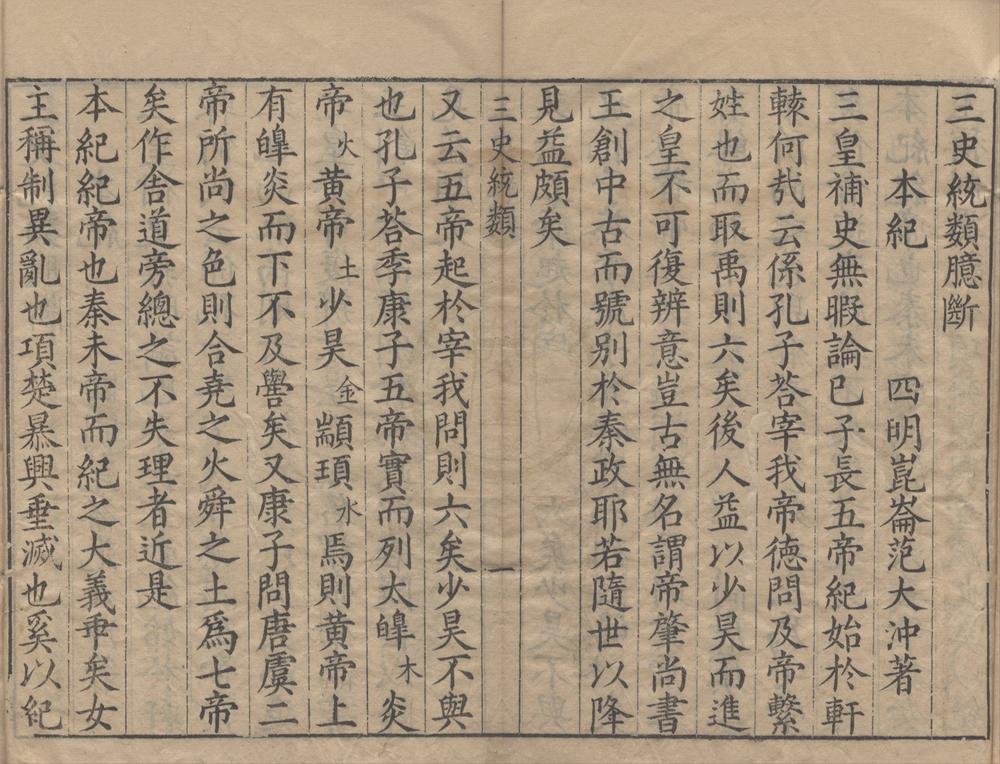 三史統類臆斷
本紀　　四明崑崙范大沖著
三皇補史無暇論已子長五帝紀始於軒
轅何㢤云係孔子荅宰我帝德問及帝繫
姓也而取禹則六矣後人益以少昊而進
之皇不可復辨意豈古無名謂帝肇尚書
王創中古而號別於秦政耶若隨世以降
見益頗矣
三史統類　一
又云五帝起於宰我問則六矣少昊不與
也孔子荅季康子五帝實而列太皥木炎
帝火黃帝土少昊金顓頊水焉則黃帝上
有皥炎而下不及嚳矣又康子問唐虞二
帝所尚之色則合堯之火舜之土爲七帝
矣作舍道旁總之不失理者近是
本紀紀帝也秦未帝而紀之大義乖矣女
主稱制異亂也項楚暴興垂滅也奚以紀